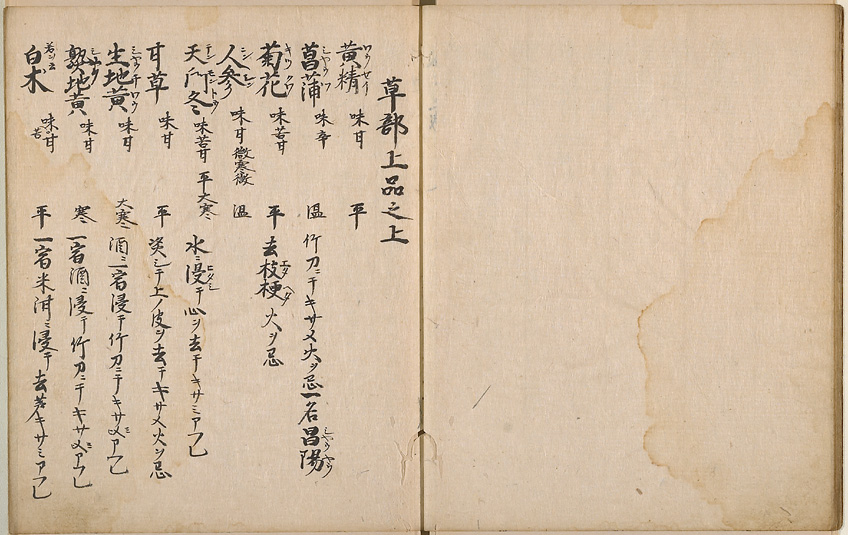 草部上品之上
黄精 ワウセイ 味甘 平
菖蒲 シヤウフ 味辛 温 竹刀ニテキサメ火ヲ忌一名昌陽 シヤウヤウ
菊花 キククワ 味苦甘 平 去枝梗 エダ 火ヲ忌
人参 ニンジン 味甘 微寒微温
天門冬 テンモントウ 味苦甘 平大寒 水ニ浸テ心ヲ去テキサミアフル
甘草 味甘 平 炙シテ上ノ皮ヲ去テキサメ火ヲ忌
生地黄 味甘 大寒 酒ニ一宿浸テ竹刀ニテキサメ
熟地黄 味甘 寒 一宿酒ニ浸テ竹刀ニテキサメ
白朮 味苦甘 平 一宿米泔ニ浸テ去キサミ